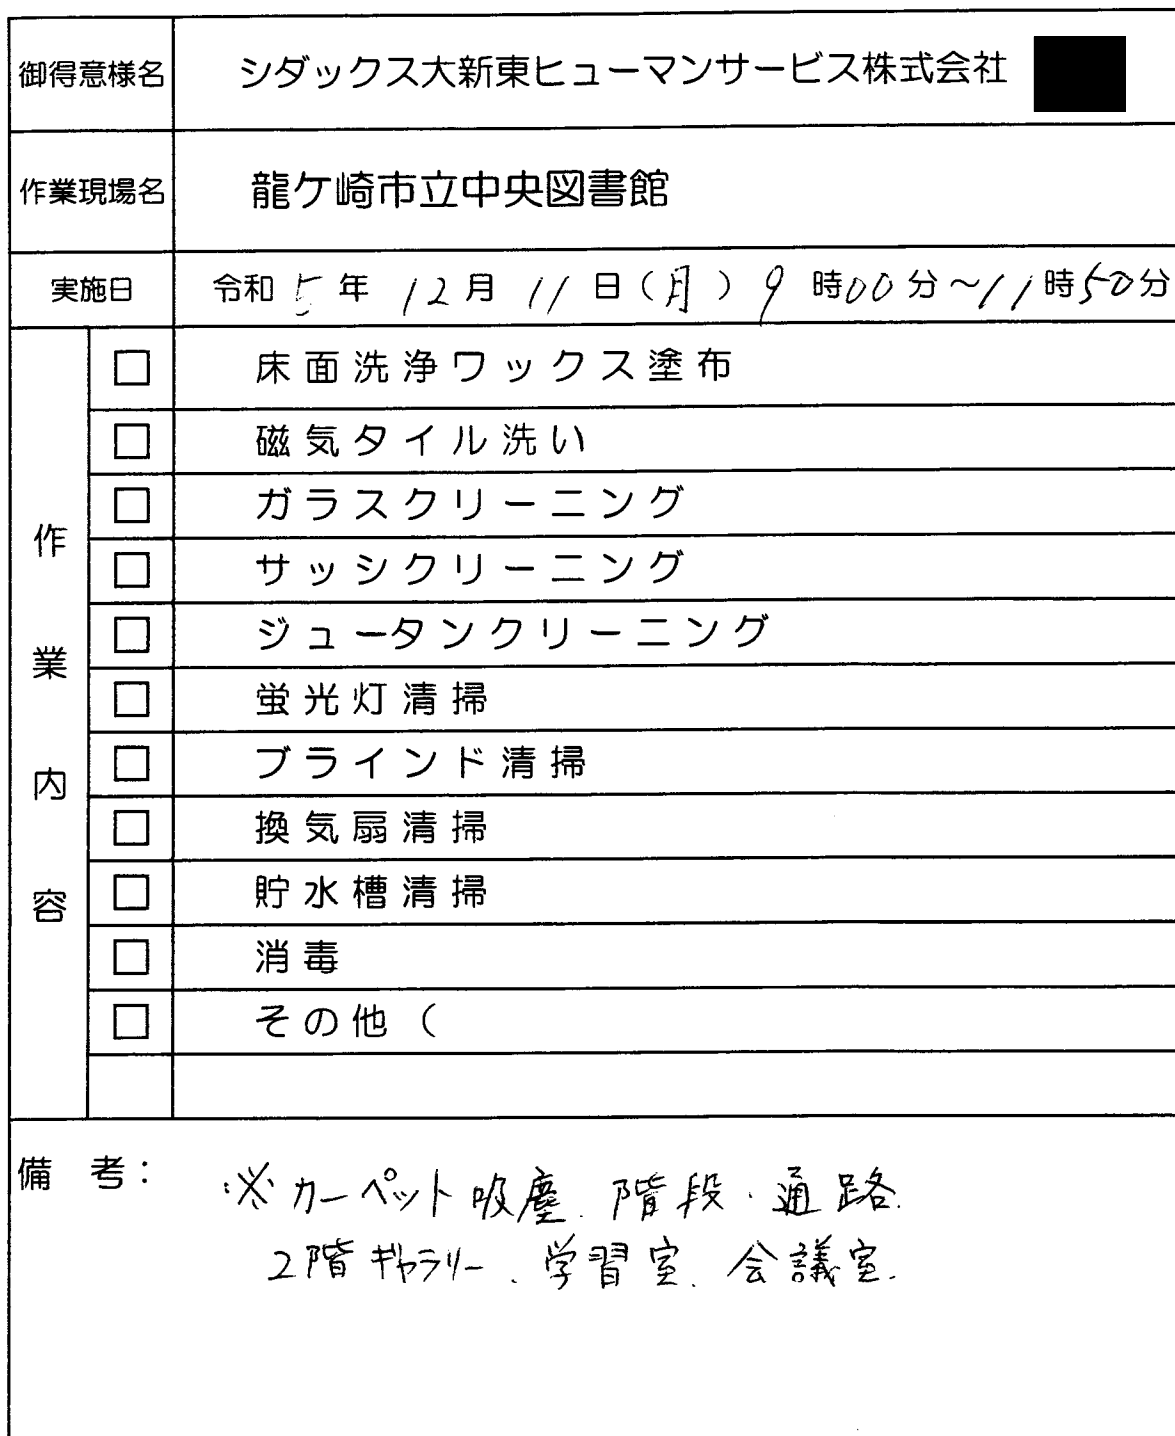 御得意様名 シダックス大新東ヒューマンサービス株式会社
作業現場名 龍ケ崎市立中央図書館
実施日 令和5年12月11日(月)9時00分~11時50分
作業内容
□ 床面洗浄ワックス塗布
□ 磁気タイル洗い
□ ガラスクリーニング
□ サッシクリーニング
□ ジュータンクリーニング
□ 蛍光灯清掃
□ ブラインド清掃
□ 換気扇清掃
□ 貯水槽清掃
□ 消毒
□ その他(
備考:
※カーペット吸塵、階段・通路、
2階ギャラリー、学習室、会議室、